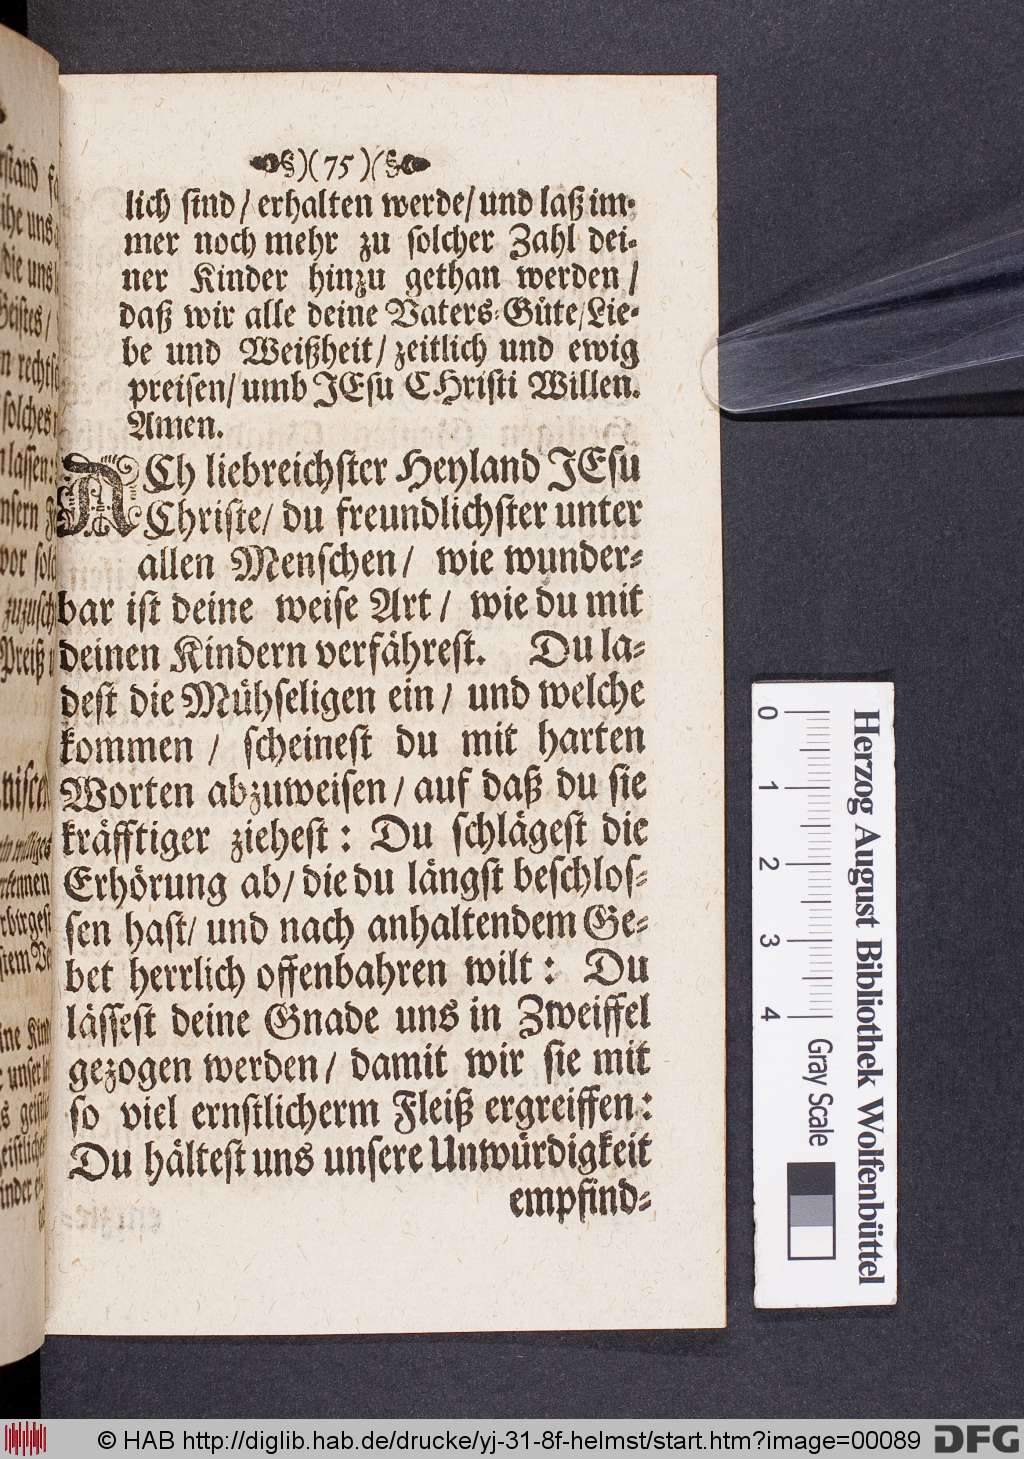 §)(75)(§
lich sind/ erhalten werde/ und laß im-
mer noch mehr zu solcher Zahl dei-
ner Kinder hinzu gethan werden/
daß wir alle deine Vaters-Güte/Lie-
be und Weißheit/ zeitlich und ewig
preisen/ umb JEsu CHristi Willen.
Amen.
ACh liebreichster Heyland JEsu
Christe/ du freundlichster unter
allen Menschen/ wie wunder-
bar ist deine weise Art/ wie du mit
deinen Kindern verfährest. Du la-
dest die Mühseligen ein/ und welche
kommen/ scheinest du mit harten
Worten abzuweisen/ auf daß du sie
kräfftiger ziehest: Du schlägest die
Erhörung ab/ die du längst beschlos-
sen hast/ und nach anhaltendem Ge-
bet herrlich offenbahren wilt: Du
lässest deine Gnade uns in Zweiffel
gezogen werden/ damit wir sie mit
so viel ernstlicherm Fleiß ergreiffen:
Du hältest uns unsere Unwürdigkeit
empfind-
Herzog August Bibliothek Wolfenbüttel
0 1 2 3 4 Gray Scale
© HAB http://diglib.hab.de/drucke/yj-31-8f-helmst/start.htm?image=00089 DFG